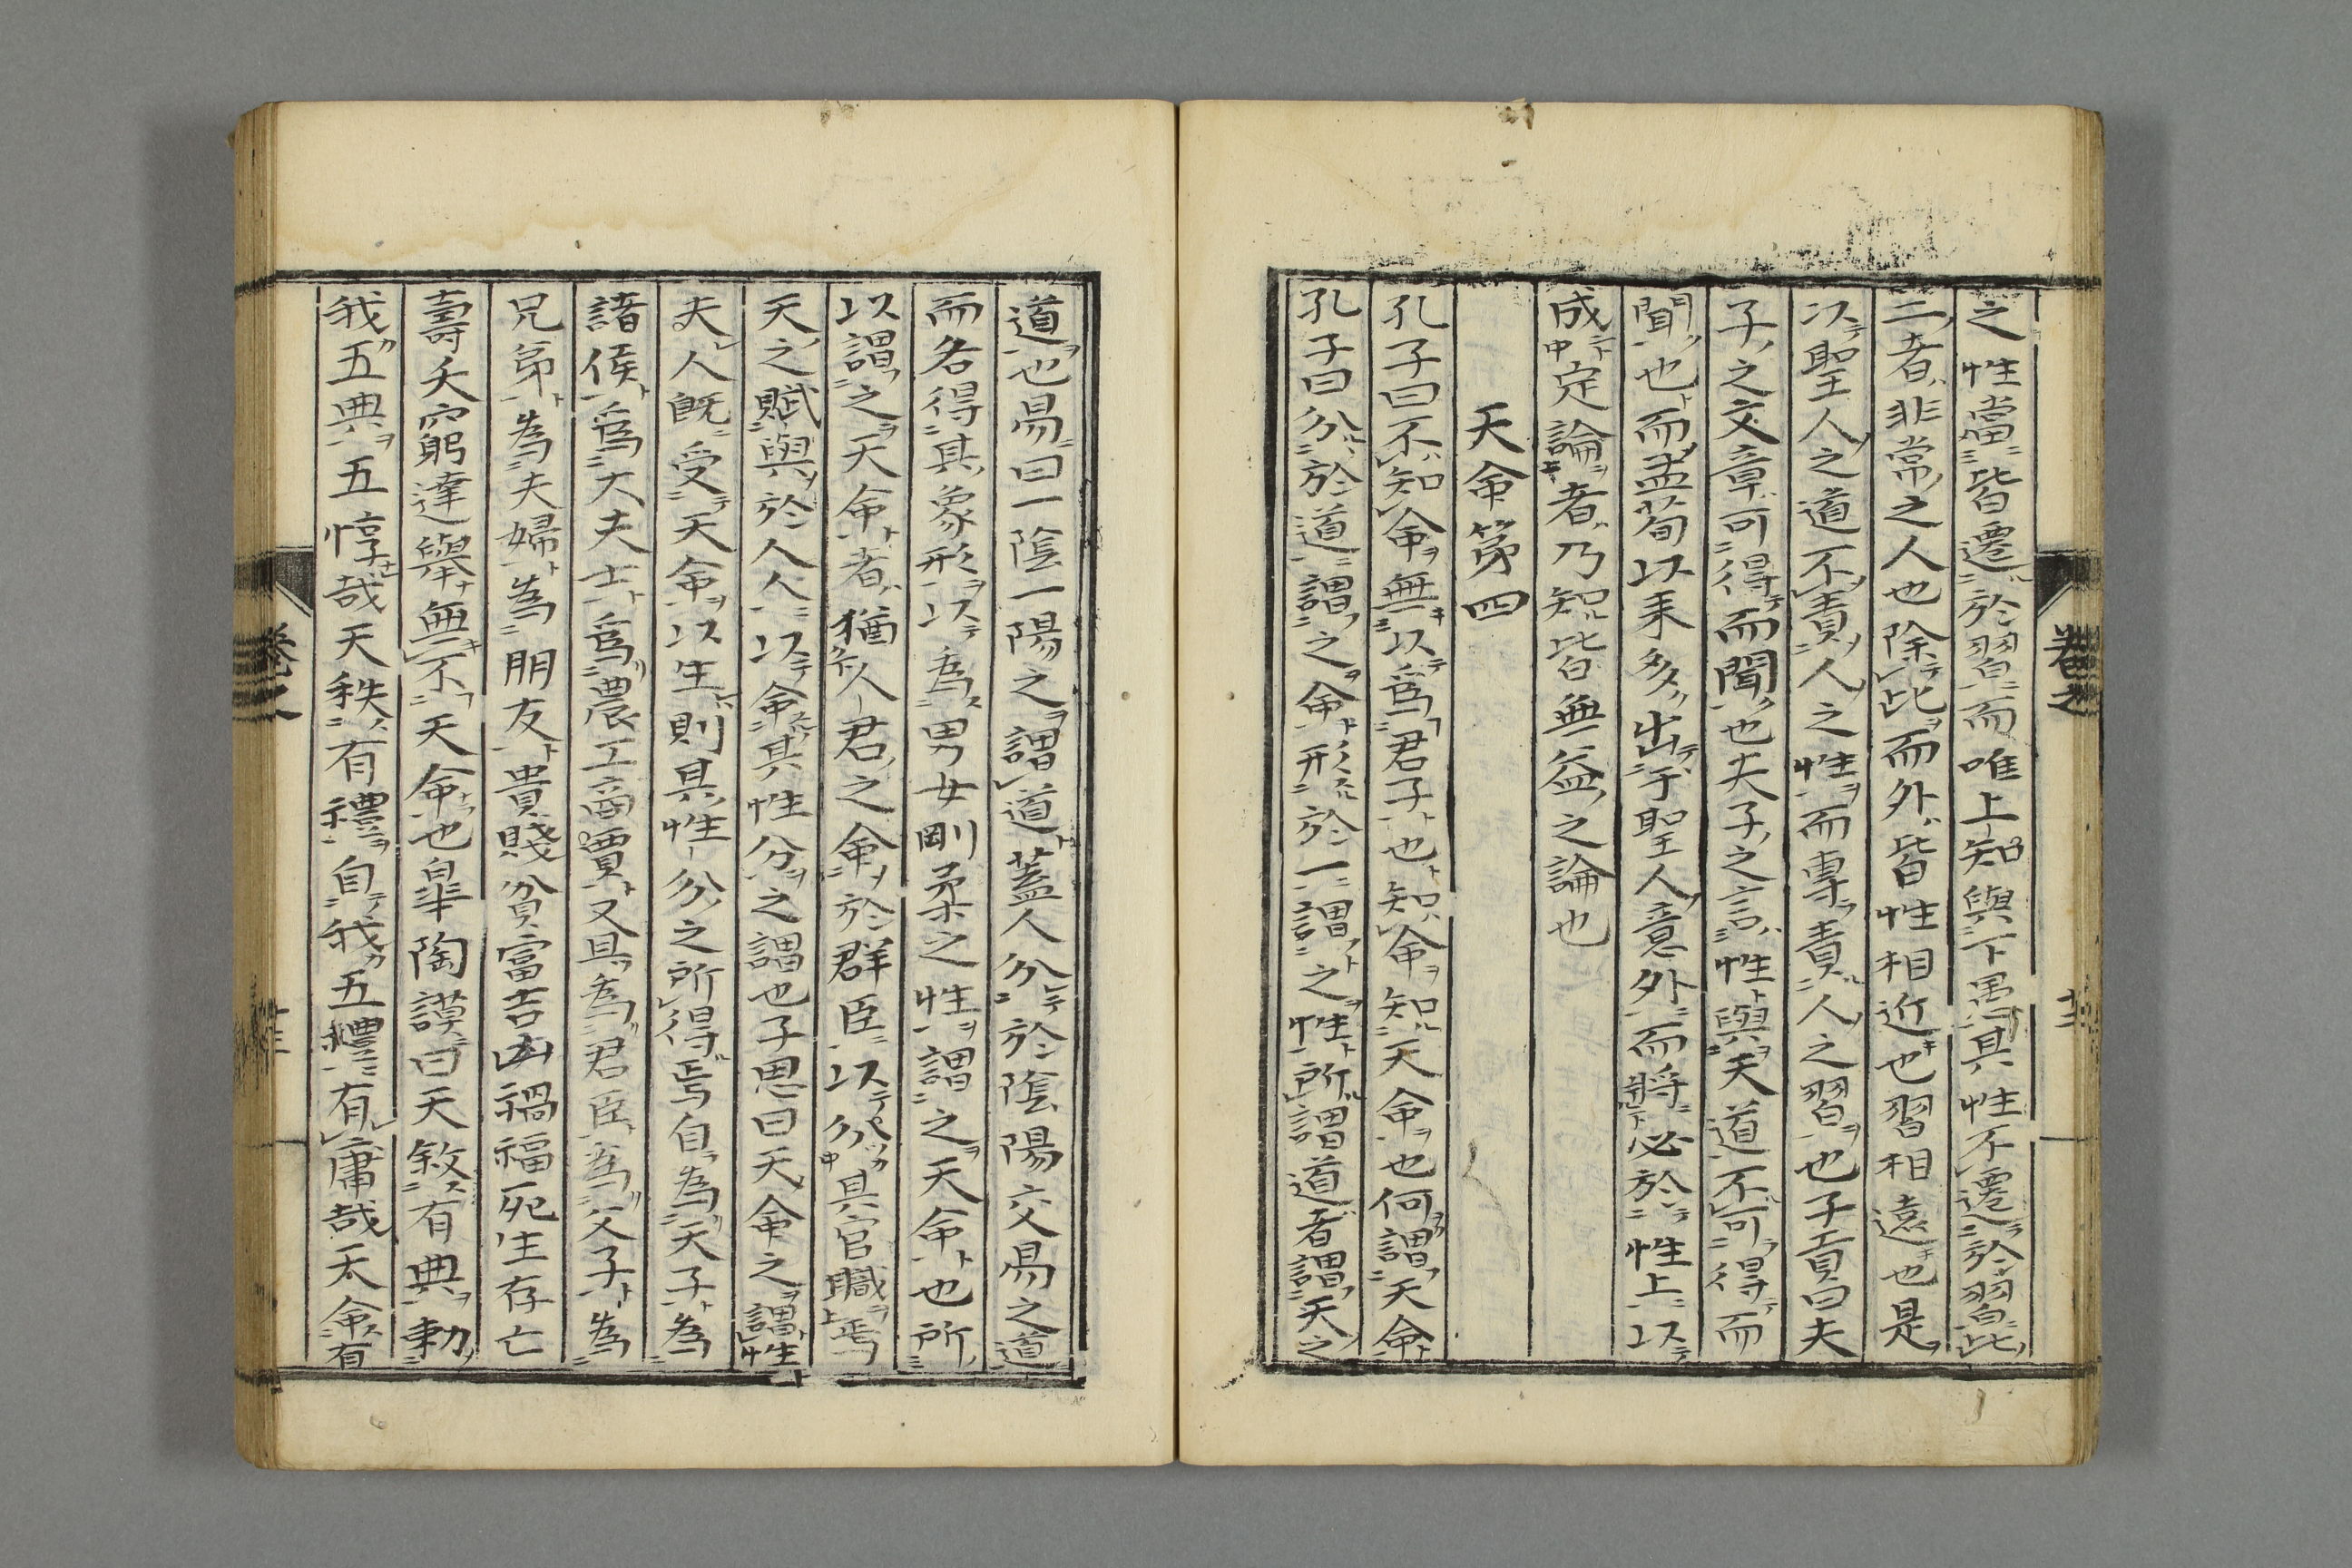 之性當皆遷於習而唯上知與下愚其性不遷於習此
二者非常之人也除此而外皆性相近也習相遠也是
以聖人之道不責人之性而專責人之習也子貢曰夫
子之文章可得而聞也夫子之言性與天道不可得而
聞也而孟荀以来多出于聖人意外而將必於性上以
成定論者乃知皆無益之論也
天命第四
孔子曰不知命無以爲君子也知命知天命也何謂天命
孔子曰分於道謂之命形於一謂之性所謂道者謂天之
道也易曰一陰一陽之謂道蓋人分於陰陽交易之道
而各得其象形以為男女剛柔之性謂之天命也所
以謂之天命者猶人君之命於群臣以分其官職焉
天之賦與於人人以命其性分之謂也子思曰天命之謂性
夫人既受天命以生則其性分之所得焉自為天子為
諸侯爲大夫士爲農工商賈又其為君臣為父子為
兄弟為夫婦為朋友貴賤貧富吉凶禍福死生存亡
壽夭窮達舉無不天命也皐陶謨曰天敘有典勑
我五典五惇哉天秩有禮自我五禮有庸哉天命有
卷之
卷之